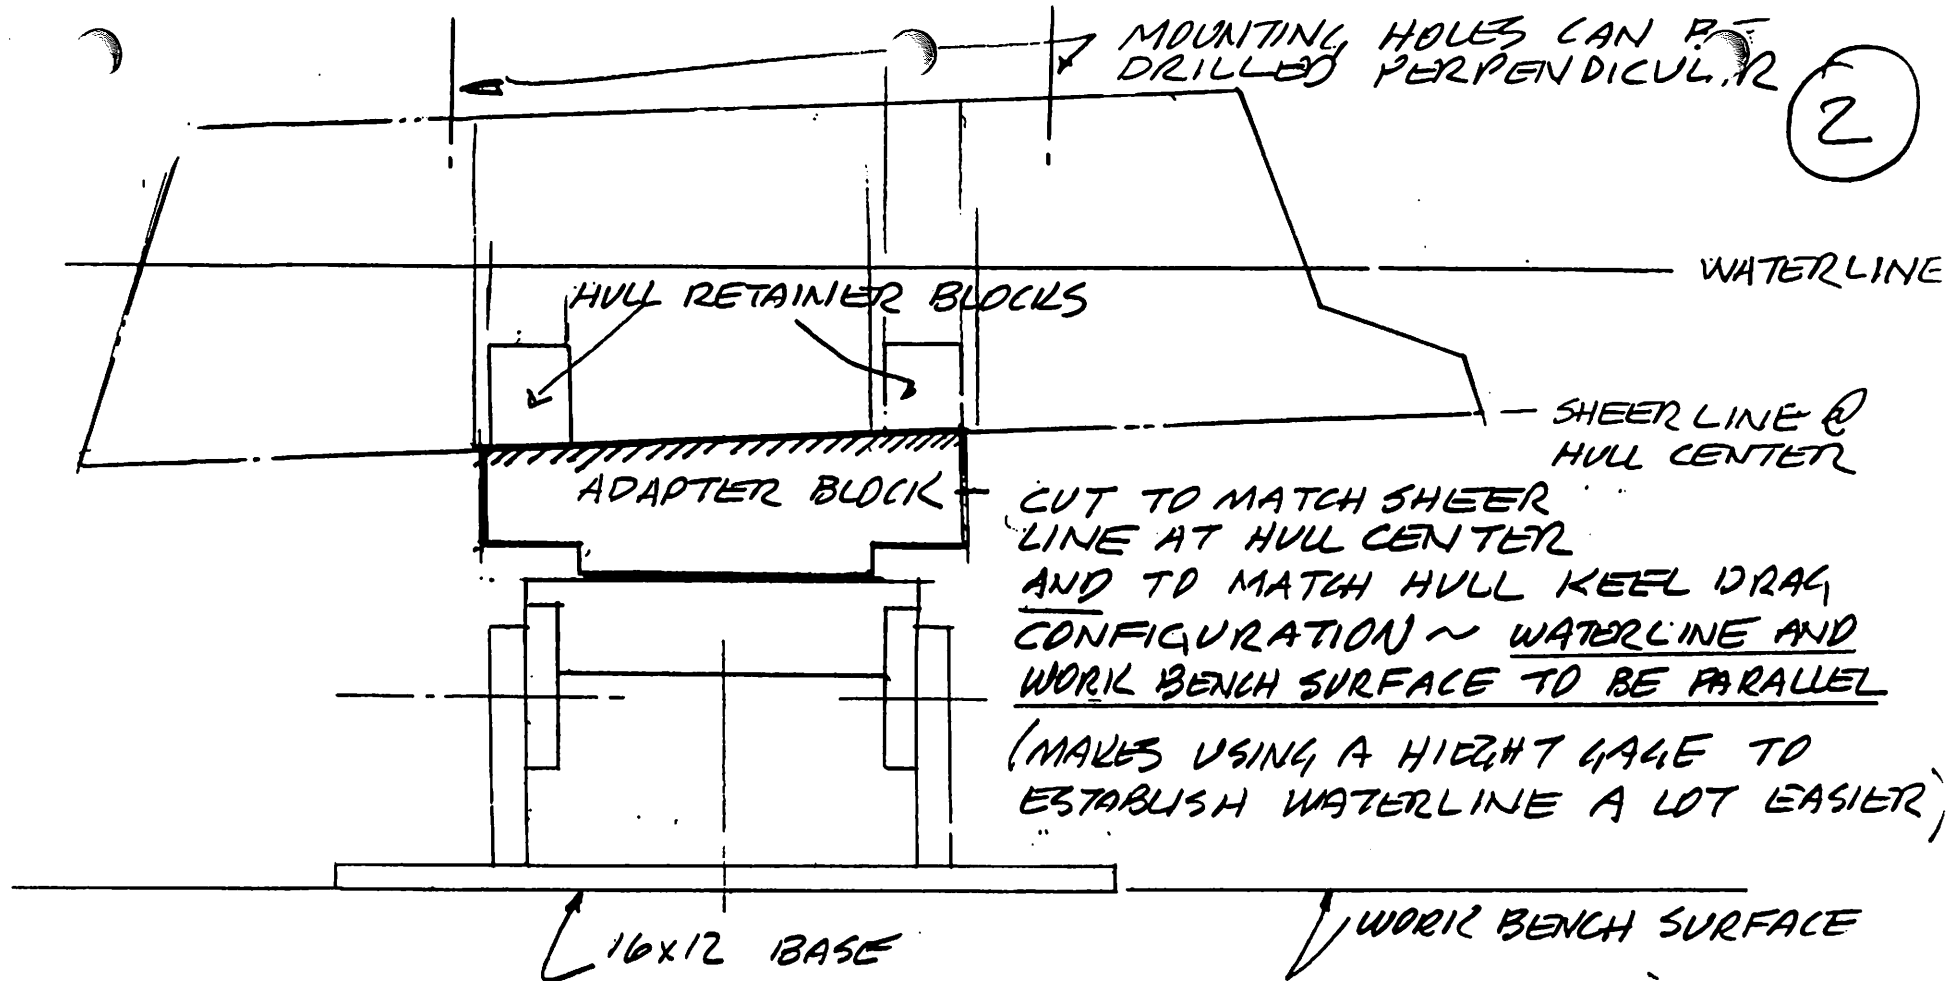 MOUNTING HOLES CAN BE
DRILLED PERPENDICULAR
2
WATERLINE
HULL RETAINER BLOCKS
SHEER LINE @
HULL CENTER
ADAPTER BLOCK
CUT TO MATCH SHEER
LINE AT HULL CENTER
AND TO MATCH HULL KEEL DRAG
CONFIGURATION ~ WATERLINE AND
WORK BENCH SURFACE TO BE PARALLEL
(MAKES USING A HIEGHT GAGE TO
ESTABLISH WATERLINE A LOT EASIER)
16x12 BASE
WORK BENCH SURFACE